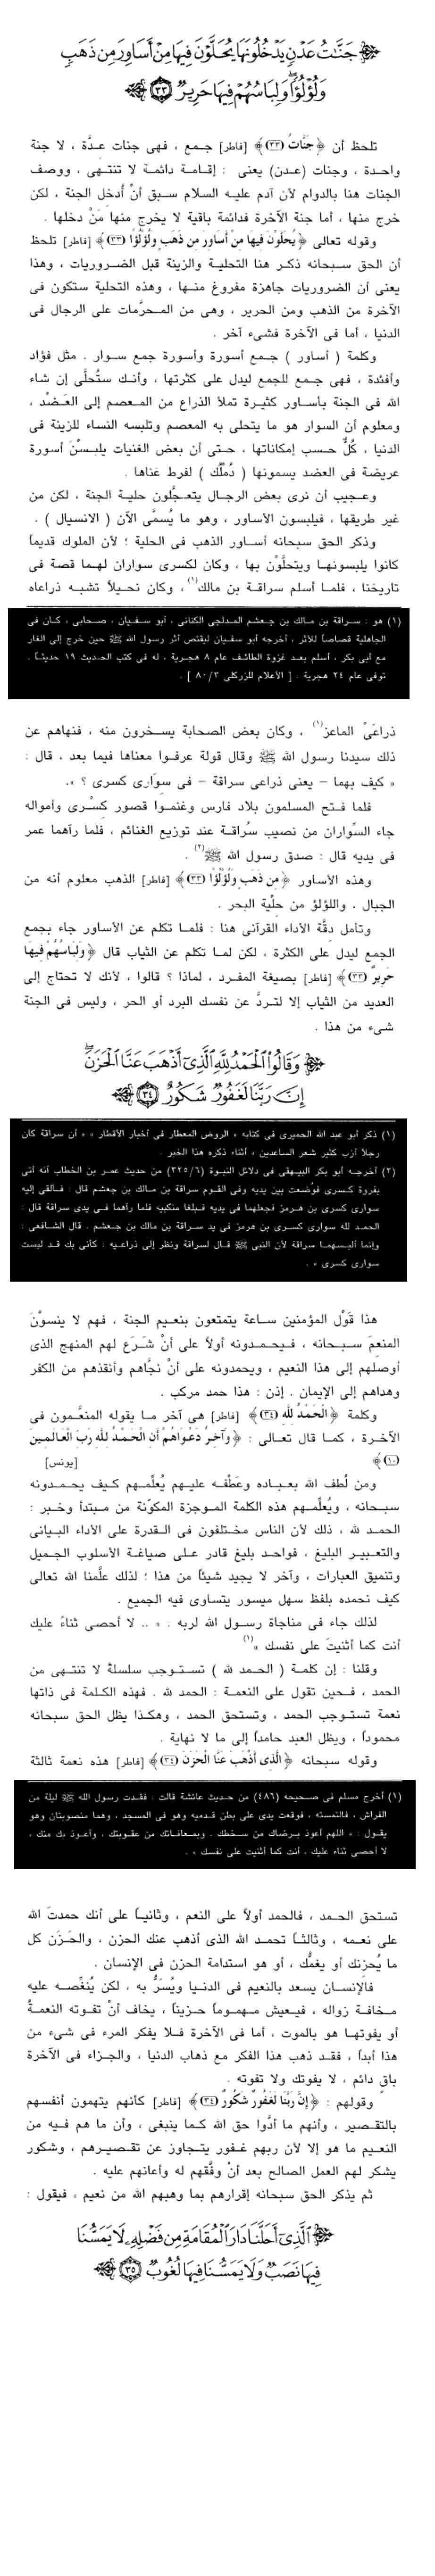 جَنَّاتُ عَدْنٍ يَدْخُلُونَهَا يُحَلَّوْنَ فِيهَا مِنْ أَسَاوِرَ مِن ذَهَبٍ
وَلُؤْلُؤًا وَلِبَاسُهُمْ فِيهَا حَرِيرٌ ٣٣
تلحظ أن ﴿جَنَّاتُ (٣٣)﴾ [فاطر] جمع ، فهى جنات عدَّة ، لا جنة
واحدة ، وجنات (عدن) يعنى : إقامة دائمة لا تنتهى ، ووصف
الجنات هنا بالدوام لأن آدم عليه السلام سبق أنْ أُدخل الجنة ، لكن
خرج منها ، أما جنة الآخرة فدائمة باقية لا يخرج منها مَنْ دخلها .
وقوله تعالى ﴿يُحَلَّوْنَ فِيهَا مِنْ أَسَاوِرَ مِن ذَهَبٍ وَلُؤْلُؤًا (٣٣)﴾ [فاطر] تلحظ
أن الحق سبحانه ذكر هنا التحلية والزينة قبل الضروريات ، وهذا
يعنى أن الضروريات جاهزة مفروغ منها ، وهذه التحلية ستكون فى
الآخرة من الذهب ومن الحرير ، وهى من المحرَّمات على الرجال فى
الدنيا ، أما فى الآخرة فشىء آخر .
وكلمة ( أساور ) جمع أسورة وأسورة جمع سوار . مثل فؤاد
وأفئدة ، فهى جمع للجمع ليدل على كثرتها ، وأنك ستُحلَّى إن شاء
الله فى الجنة بأساور كثيرة تملأ الذراع من المعصم إلى العَضُد ،
ومعلوم أن السوار هو ما يتحلى به المعصم وتلبسه النساء للزينة فى
الدنيا ، كُلٌّ حسب إمكاناتها ، حتى أن بعض الغنيات يلبسْنَ أسورة
عريضة فى العضد يسمونها ( دُمْلُك ) لفرط غناها .
وعجيب أن نرى بعض الرجال يتعجَّلون حلية الجنة ، لكن من
غير طريقها ، فيلبسون الأساور ، وهو ما يُسمَّى الآن ( الانسيال ) .
وذكر الحق سبحانه أساور الذهب فى الحلية ؛ لأن الملوك قديماً
كانوا يلبسونها ويتحلَّوْن بها ، وكان لكسرى سواران لهما قصة فى
تاريخنا ، فلما أسلم سراقة بن مالك(١) ، وكان نحيلاً تشبه ذراعاه
(١) هو : سراقة بن مالك بن جعشم المدلجى الكنانى ، أبو سفيان ، صحابى ، كان فى
الجاهلية قصاصاً للأثر ، أخرجه أبو سفيان ليقتص أثر رسول الله ﷺ حين خرج إلى الغار
مع أبى بكر ، أسلم بعد غزوة الطائف عام ٨ هجرية ، له فى كتب الحديث ١٩ حديثاً .
توفى عام ٢٤ هجرية . [ الأعلام للزركلى ٨٠/٣ ] .
ذراعَىْ الماعز(١) ، وكان بعض الصحابة يسخرون منه ، فنهاهم عن
ذلك سيدنا رسول الله ﷺ وقال قولة عرفوا معناها فيما بعد ، قال :
« كيف بهما – يعنى ذراعى سراقة – فى سوارى كسرى ؟ ».
فلما فتح المسلمون بلاد فارس وغنموا قصور كسْرى وأمواله
جاء السِّواران من نصيب سُراقة عند توزيع الغنائم ، فلما رآهما عمر
فى يديه قال : صدق رسول الله ﷺ(٢) .
وهذه الأساور ﴿مِن ذَهَبٍ وَلُؤْلُؤًا (٣٣)﴾ [فاطر] الذهب معلوم أنه من
الجبال ، واللؤلؤ من حلْية البحر .
وتأمل دقَّة الأداء القرآنى هنا : فلما تكلم عن الأساور جاء بجمع
الجمع ليدل على الكثرة ، لكن لما تكلم عن الثياب قال ﴿وَلِبَاسُهُمْ فِيهَا
حَرِيرٌ (٣٣)﴾ [فاطر] بصيغة المفرد ، لماذا ؟ قالوا ، لأنك لا تحتاج إلى
العديد من الثياب إلا لتردَّ عن نفسك البرد أو الحر ، وليس فى الجنة
شىء من هذا .
وَقَالُوا الْحَمْدُ لِلَّهِ الَّذِي أَذْهَبَ عَنَّا الْحَزَنَ
إِنَّ رَبَّنَا لَغَفُورٌ شَكُورٌ ٣٤
(١) ذكر أبو عبد الله الحميرى فى كتابه « الروض المعطار فى أخبار الأقطار » « أن سراقة كان
رجلاً أزب كثير شعر الساعدين » أثناء ذكره هذا الخبر .
(٢) أخرجه أبو بكر البيهقى فى دلائل النبوة (٣٢٥/٦) من حديث عمر بن الخطاب أنه أتى
بفروة كسرى فوُضعت بين يديه وفى القوم سراقة بن مالك بن جعشم قال : فألقى إليه
سوارى كسرى بن هرمز فجعلهما فى يديه فبلغا منكبيه فلما رآهما فى يدى سراقة قال :
الحمد لله سوارى كسرى بن هرمز فى يد سراقة بن مالك بن جعشم . قال الشافعى :
وإنما ألبسهما سراقة لأن النبى ﷺ قال لسراقة ونظر إلى ذراعيه : كأنى بك قد لبست
سوارى كسرى » .
هذا قَوْل المؤمنين ساعة يتمتعون بنعيم الجنة ، فهم لا ينسوْنَ
المنعِمَ سبحانه ، فيحمدونه أولاً على أنْ شَرَع لهم المنهج الذى
أوصلهم إلى هذا النعيم ، ويحمدونه على أنْ نجَّاهم وأنقذهم من الكفر
وهداهم إلى الإيمان . إذن : هذا حمد مركب .
وكلمة ﴿الْحَمْدُ لِلَّهِ (٣٤)﴾ [فاطر] هى آخر ما يقوله المنعَّمون فى
الآخرة ، كما قال تعالى : ﴿وَآخِرُ دَعْوَاهُمْ أَنِ الْحَمْدُ لِلَّهِ رَبِّ الْعَالَمِينَ
(١٠)﴾ [يونس]
ومن لُطف الله بعباده وعَطْفه عليهم يُعلِّمهم كيف يحمدونه
سبحانه ، ويُعلِّمهم هذه الكلمة الموجزة المكوّنة من مبتدأ وخبر :
الحمد لله ، ذلك لأن الناس مختلفون فى القدرة على الأداء البيانى
والتعبير البليغ ، فواحد بليغ قادر على صياغة الأسلوب الجميل
وتنميق العبارات ، وآخر لا يجيد شيئاً من هذا ؛ لذلك علَّمنا الله تعالى
كيف نحمده بلفظ سهل ميسور يتساوى فيه الجميع .
لذلك جاء فى مناجاة رسول الله لربه : « .. لا أحصى ثناءً عليك
أنت كما أثنيتَ على نفسك »(١)
وقلنا : إن كلمة ( الحمد لله ) تستوجب سلسلةً لا تنتهى من
الحمد ، فحين تقول على النعمة : الحمد لله . فهذه الكلمة فى ذاتها
نعمة تستوجب الحمد ، وتستحق الحمد ، وهكذا يظل الحق سبحانه
محموداً ، ويظل العبد حامداً إلى ما لا نهاية .
وقوله سبحانه ﴿الَّذِي أَذْهَبَ عَنَّا الْحَزَنَ (٣٤)﴾ [فاطر] هذه نعمة ثالثة
(١) أخرج مسلم فى صحيحه (٤٨٦) من حديث عائشة قالت : فقدت رسول الله ﷺ ليلة من
الفراش ، فالتمسته ، فوقعت يدى على بطن قدميه وهو فى المسجد ، وهما منصوبتان وهو
يقول : « اللهم أعوذ برضاك من سخطك . وبمعافاتك من عقوبتك ، وأعوذ بك منك ،
لا أحصى ثناء عليك . أنت كما أثنيت على نفسك » .
تستحق الحمد ، فالحمد أولاً على النعم ، وثانياً على أنك حمدتَ الله
على نعمه ، وثالثاً تحمد الله الذى أذهب عنك الحزن ، والحَزَن كل
ما يُحزِنك أو يغمُّك ، أو هو استدامة الحزن فى الإنسان .
فالإنسان يسعد بالنعيم فى الدنيا ويُسَرُّ به ، لكن يُنغِّصه عليه
مخافة زواله ، فيعيش مهموماً حزيناً ، يخاف أنْ تفوته النعمةُ
أو يفوتها هو بالموت ، أما فى الآخرة فلا يفكر المرء فى شىء من
هذا أبداً ، فقد ذهب هذا الفكر مع ذهاب الدنيا ، والجزاء فى الآخرة
باقٍ دائم ، لا يفوتك ولا تفوته .
وقولهم : ﴿إِنَّ رَبَّنَا لَغَفُورٌ شَكُورٌ (٣٤)﴾ [فاطر] كأنهم يتهمون أنفسهم
بالتقصير ، وأنهم ما أدَّوا حق الله كما ينبغى ، وأن ما هم فيه من
النعيم ما هو إلا لأن ربهم غفور يتجاوز عن تقصيرهم ، وشكور
يشكر لهم العمل الصالح بعد أنْ وفَّقهم له وأعانهم عليه .
ثم يذكر الحق سبحانه إقرارهم بما وهبهم الله من نعيم ، فيقول :
الَّذِي أَحَلَّنَا دَارَ الْمُقَامَةِ مِن فَضْلِهِ لَا يَمَسُّنَا
فِيهَا نَصَبٌ وَلَا يَمَسُّنَا فِيهَا لُغُوبٌ ٣٥